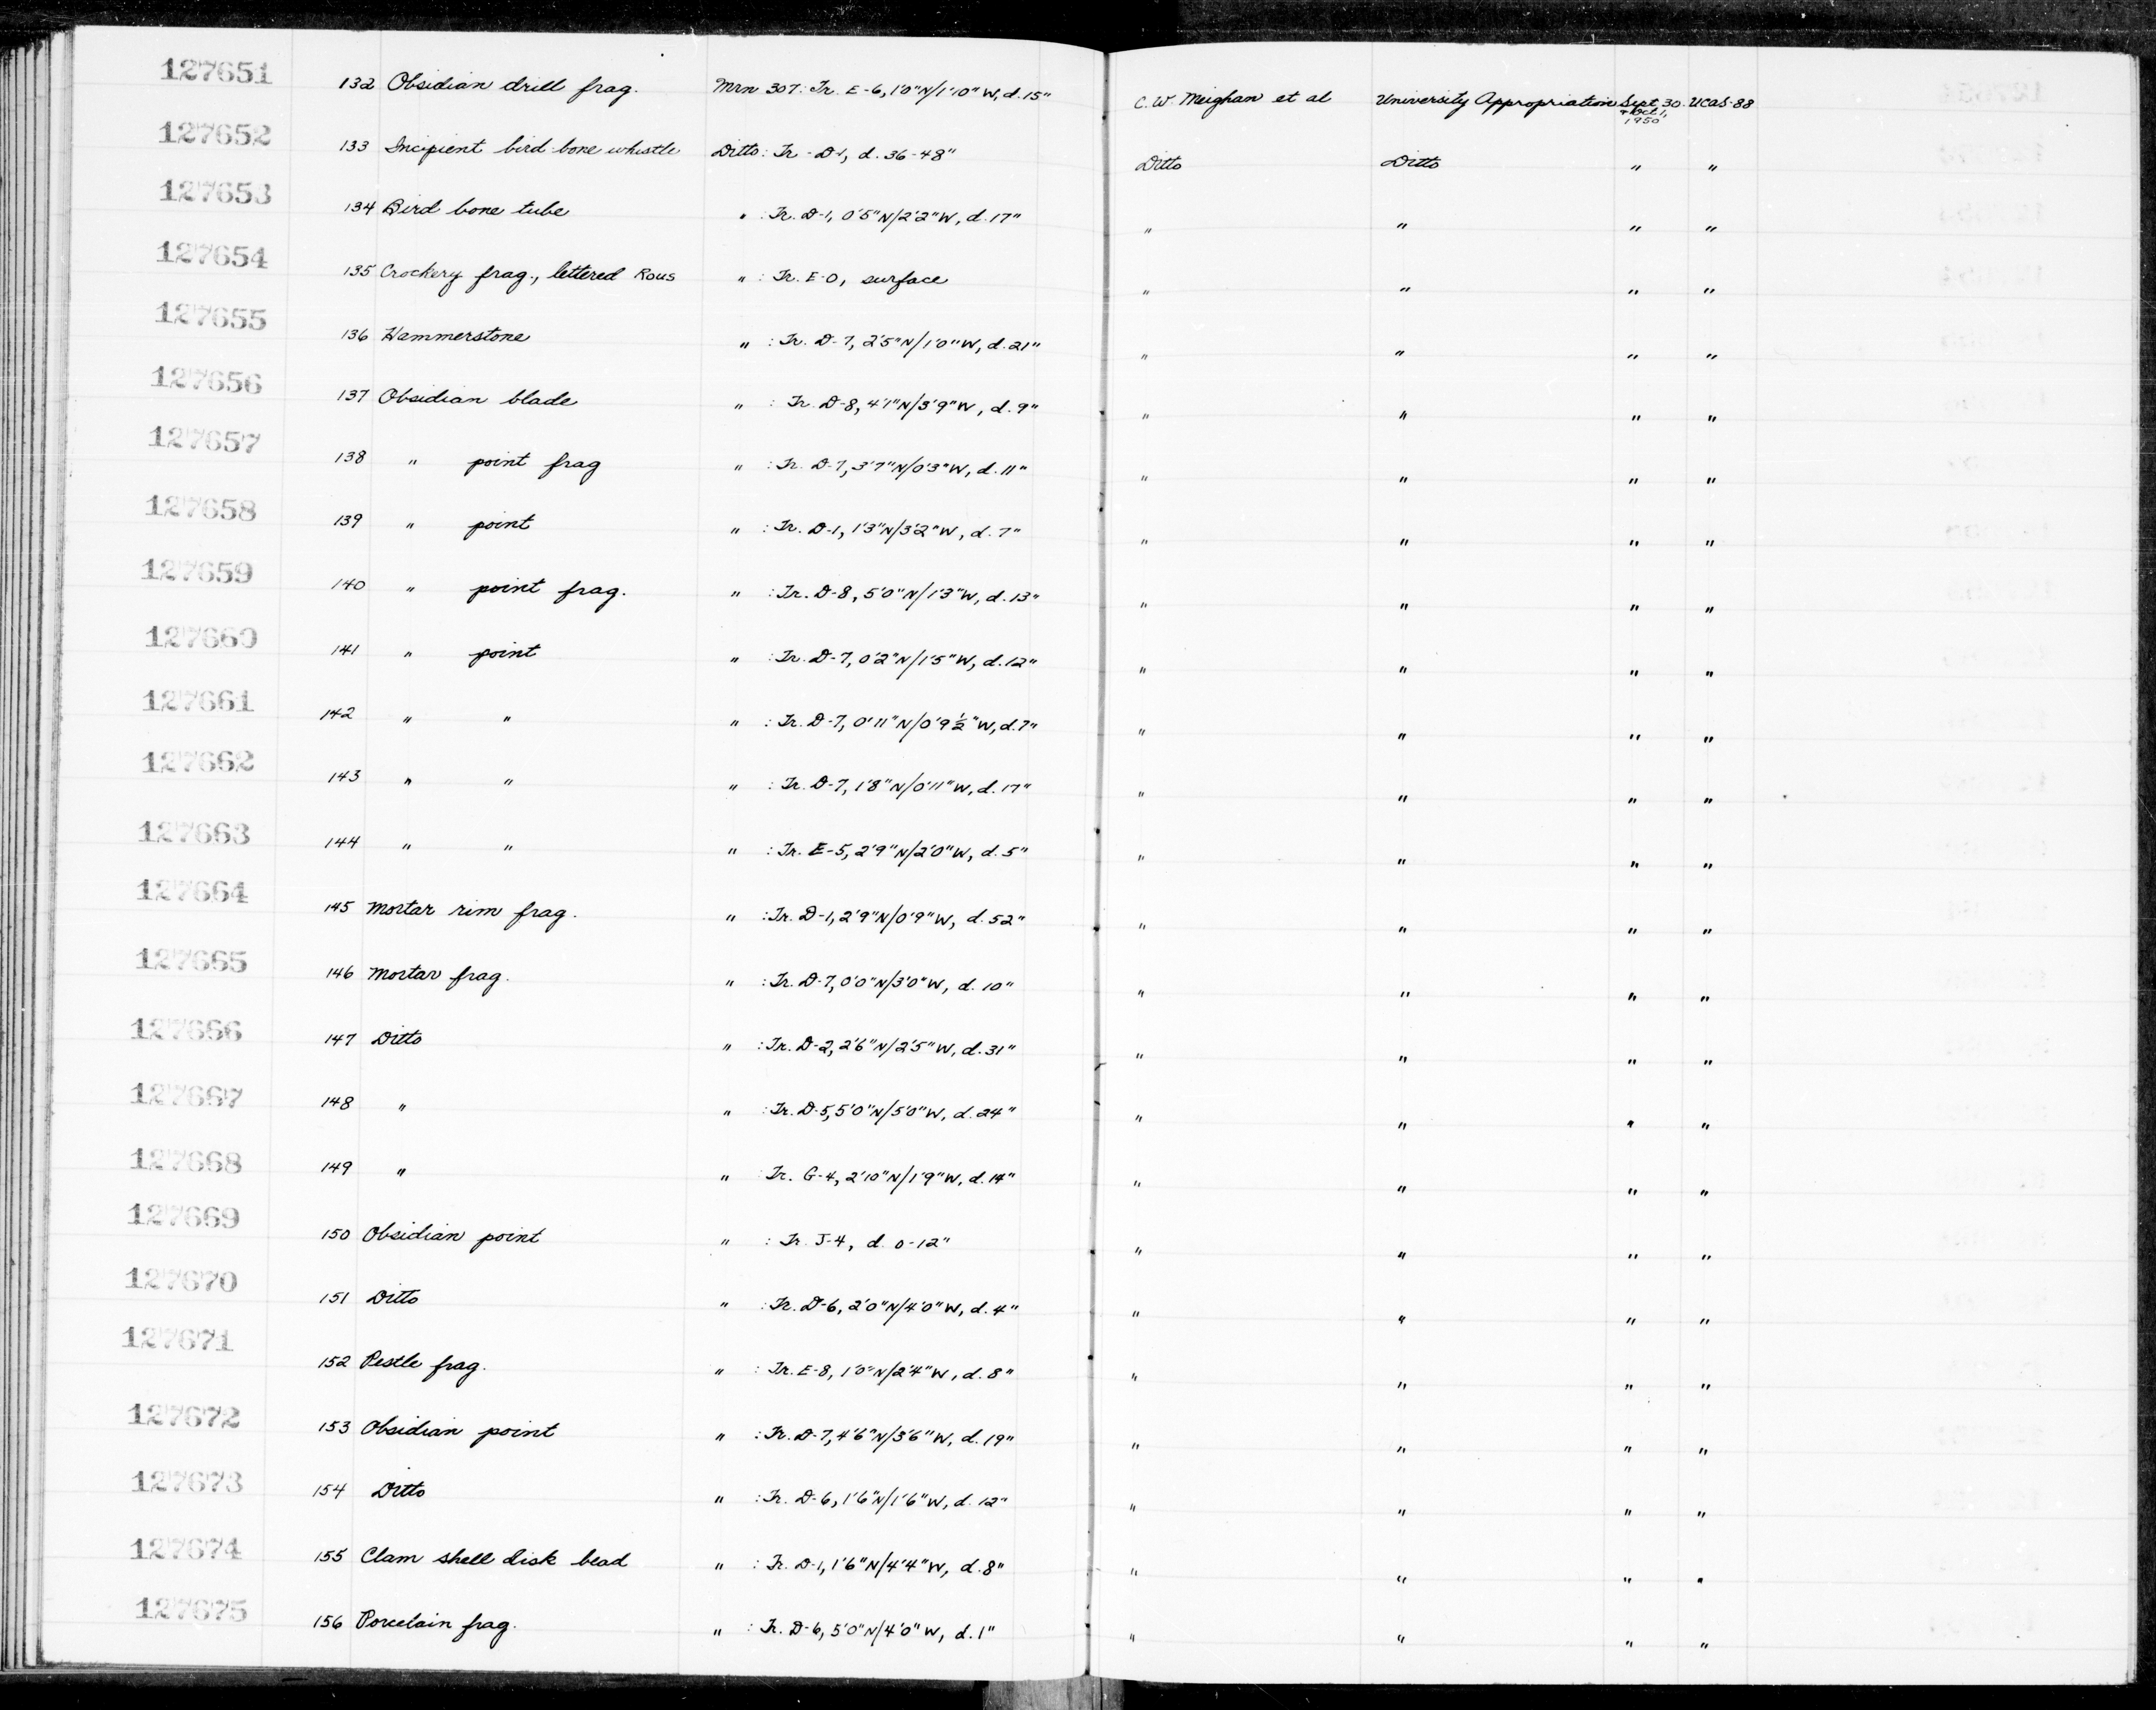 127651 132 Obsidian drill frag. Mrn 307: Tr. E-6, 1'0"N/1'10"W, d. 15" C.W. Meighan et al University Appropriation Sept. 30 UCAS-88
+ Oct 1,
1950
127652 133 Incipient bird bone whistle Ditto: Tr - D-1, d. 36-48" Ditto Ditto " "
127653 134 Bird bone tube " : Tr. D-1, 0'5"N/2'2"W, d. 17" " " " "
127654 135 Crockery frag., lettered Rous " : Tr. E-0, surface " " " "
127655 136 Hammerstone " : Tr. D-7, 2'5"N/1'0"W, d. 21" " " " "
127656 137 Obsidian blade " : Tr. D-8, 4'1"N/3'9"W, d. 9" " " " "
127657 138 " point frag " : Tr. D-7, 3'7"N/0'3"W, d. 11" " " " "
127658 139 " point " : Tr. D-1, 1'3"N/3'2"W, d. 7" " " " "
127659 140 " point frag. " : Tr. D-8, 5'0"N/1'3"W, d. 13" " " " "
127660 141 " point " : Tr. D-7, 0'2"N/1'5"W, d. 12" " " " "
127661 142 " " " : Tr. D-7, 0'11"N/0'9½"W, d. 7" " " " "
127662 143 " " " : Tr. D-7, 1'8"N/0'11"W, d. 17" " " " "
127663 144 " " " : Tr. E-5, 2'9"N/2'0"W, d. 5" " " " "
127664 145 Mortar rim frag. " : Tr. D-1, 2'9"N/0'9"W, d. 52" " " " "
127665 146 Mortar frag. " : Tr. D-7, 0'0"N/3'0"W, d. 10" " " " "
127666 147 Ditto " : Tr. D-2, 2'6"N/2'5"W, d. 31" " " " "
127667 148 " " : Tr. D-5, 5'0"N/5'0"W, d. 24" " " " "
127668 149 " " : Tr. G-4, 2'10"N/1'9"W, d. 14" " " " "
127669 150 Obsidian point " : Tr. J-4, d. 0-12" " " " "
127670 151 Ditto " : Tr. D-6, 2'0"N/4'0"W, d. 4" " " " "
127671 152 Pestle frag. " : Tr. E-8, 1'0"N/2'4"W, d. 8" " " " "
127672 153 Obsidian point " : Tr. D-7, 4'6"N/3'6"W, d. 19" " " " "
127673 154 Ditto " : Tr. D-6, 1'6"N/1'6"W, d. 12" " " " "
127674 155 Clam shell disk bead " : Tr. D-1, 1'6"N/4'4"W, d. 8" " " " "
127675 156 Porcelain frag. " : Tr. D-6, 5'0"N/4'0"W, d. 1" " " " "